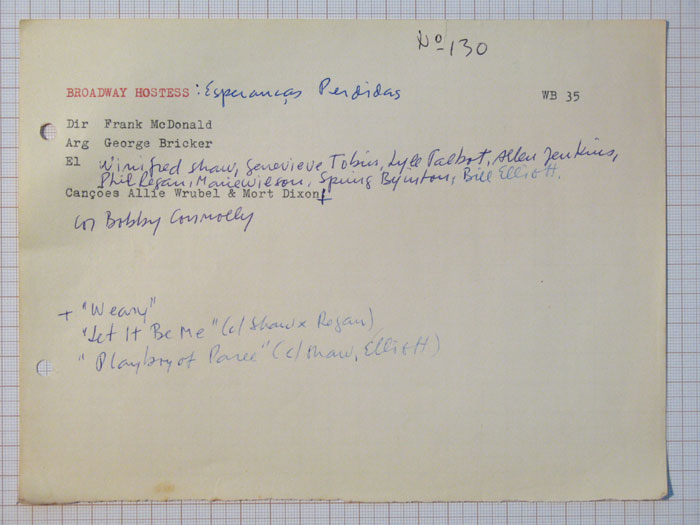 Nº 130
BROADWAY HOSTESS : Esperanças Perdidas WB 35
Dir Frank McDonald
Arg George Bricker
El Winifred Shaw, Genevieve Tobin, Lyle Talbot, Allen Jenkins,
Phil Regan, Marie Wilson, Spring Byinton, Bill Elliott
Canções Allie Wrubel & Mort Dixon +
Cor Bobby Connolly
+ "Weary"
"Let It Be Me" (c/ Shaw x Regan)
"Playboy of Paree" (c/ Shaw, Elliott)